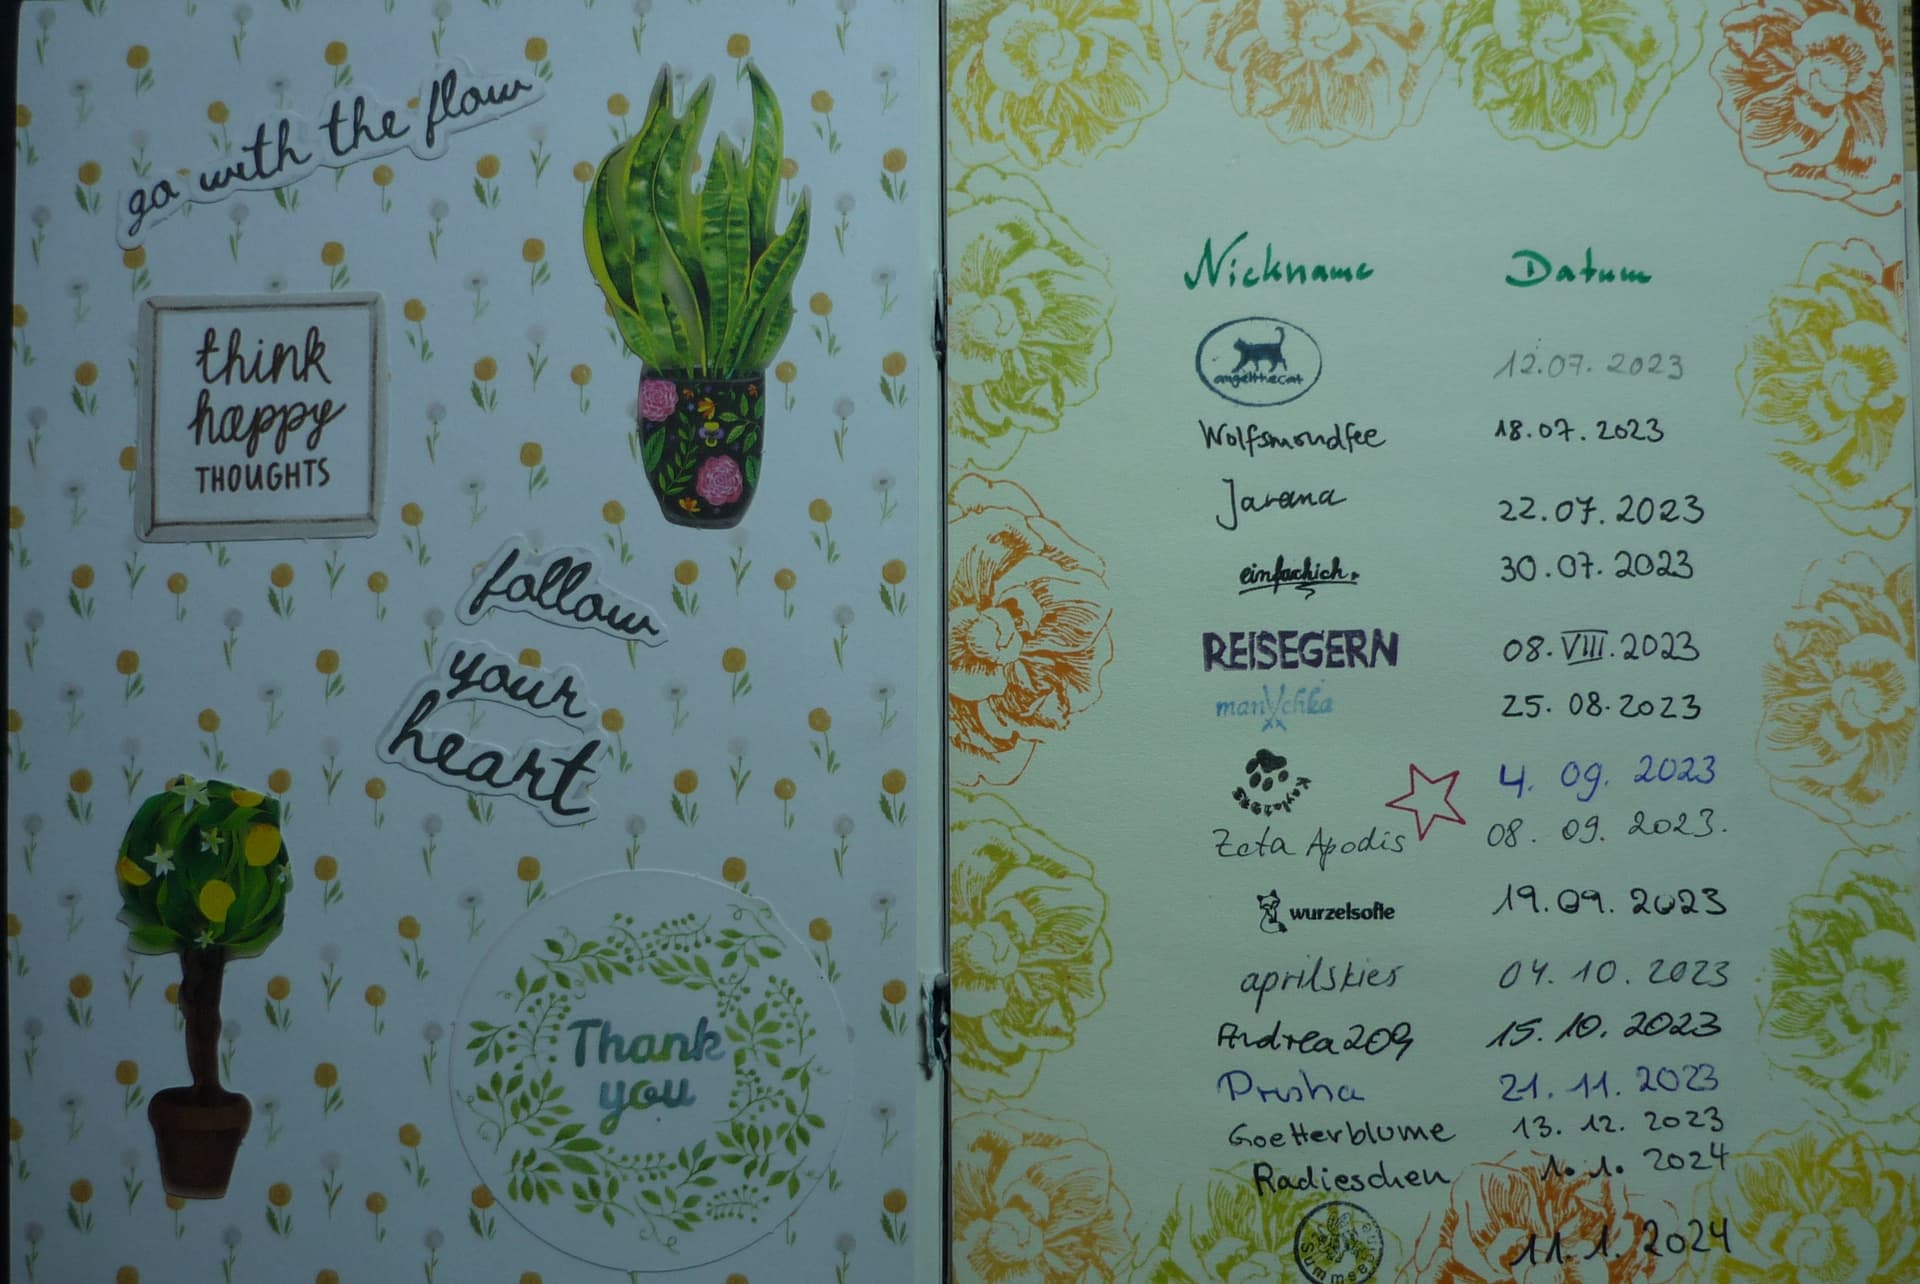 go with the flow
think
happy
THOUGHTS
follow
your
heart
Thank
you
Nickname Datum
angelthecat 12.07.2023
Wolfsmondfee 18.07.2023
Jarana 22.07.2023
einfachich. 30.07.2023
REISEGERN 08.VIII.2023
manVchka 25.08.2023
4. 09. 2023
Zeta Apodis 08. 09. 2023.
wurzelsofie 19.09.2023
aprilskies 04.10.2023
Andrea209 15.10.2023
Prusha 21.11.2023
Goetterblume 13.12.2023
Radieschen 1.1.2024
11.1.2024